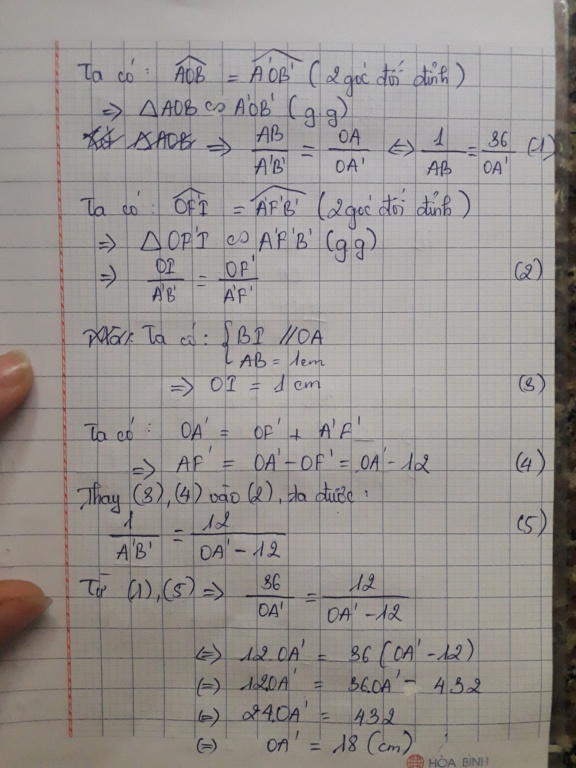 Ta có: AOB = A'OB' (2 góc đối đỉnh)
=> △AOB ∽ A'OB' (g.g)
=> AB/A'B' = OA/OA' <=> 1/AB = 36/OA' (1)
Ta có: OF'I = A'F'B' (2 góc đối đỉnh)
=> △OF'I ∽ A'F'B' (g g)
=> OI/A'B' = OF'/A'F' (2)
Ta có: { BI // OA
AB = 1cm
=> OI = 1 cm (3)
Ta có: OA' = OF' + A'F'
=> AF' = OA' - OF' = OA' - 12 (4)
Thay (3), (4) vào (2), ta được:
1/A'B' = 12/OA' - 12 (5)
Từ (1), (5) => 36/OA' = 12/OA' - 12
<=> 12.OA' = 36(OA' - 12)
<=> 12OA' = 36.OA' - 432
<=> 24.OA' = 432
<=> OA' = 18 (cm)
HÒA BÌNH